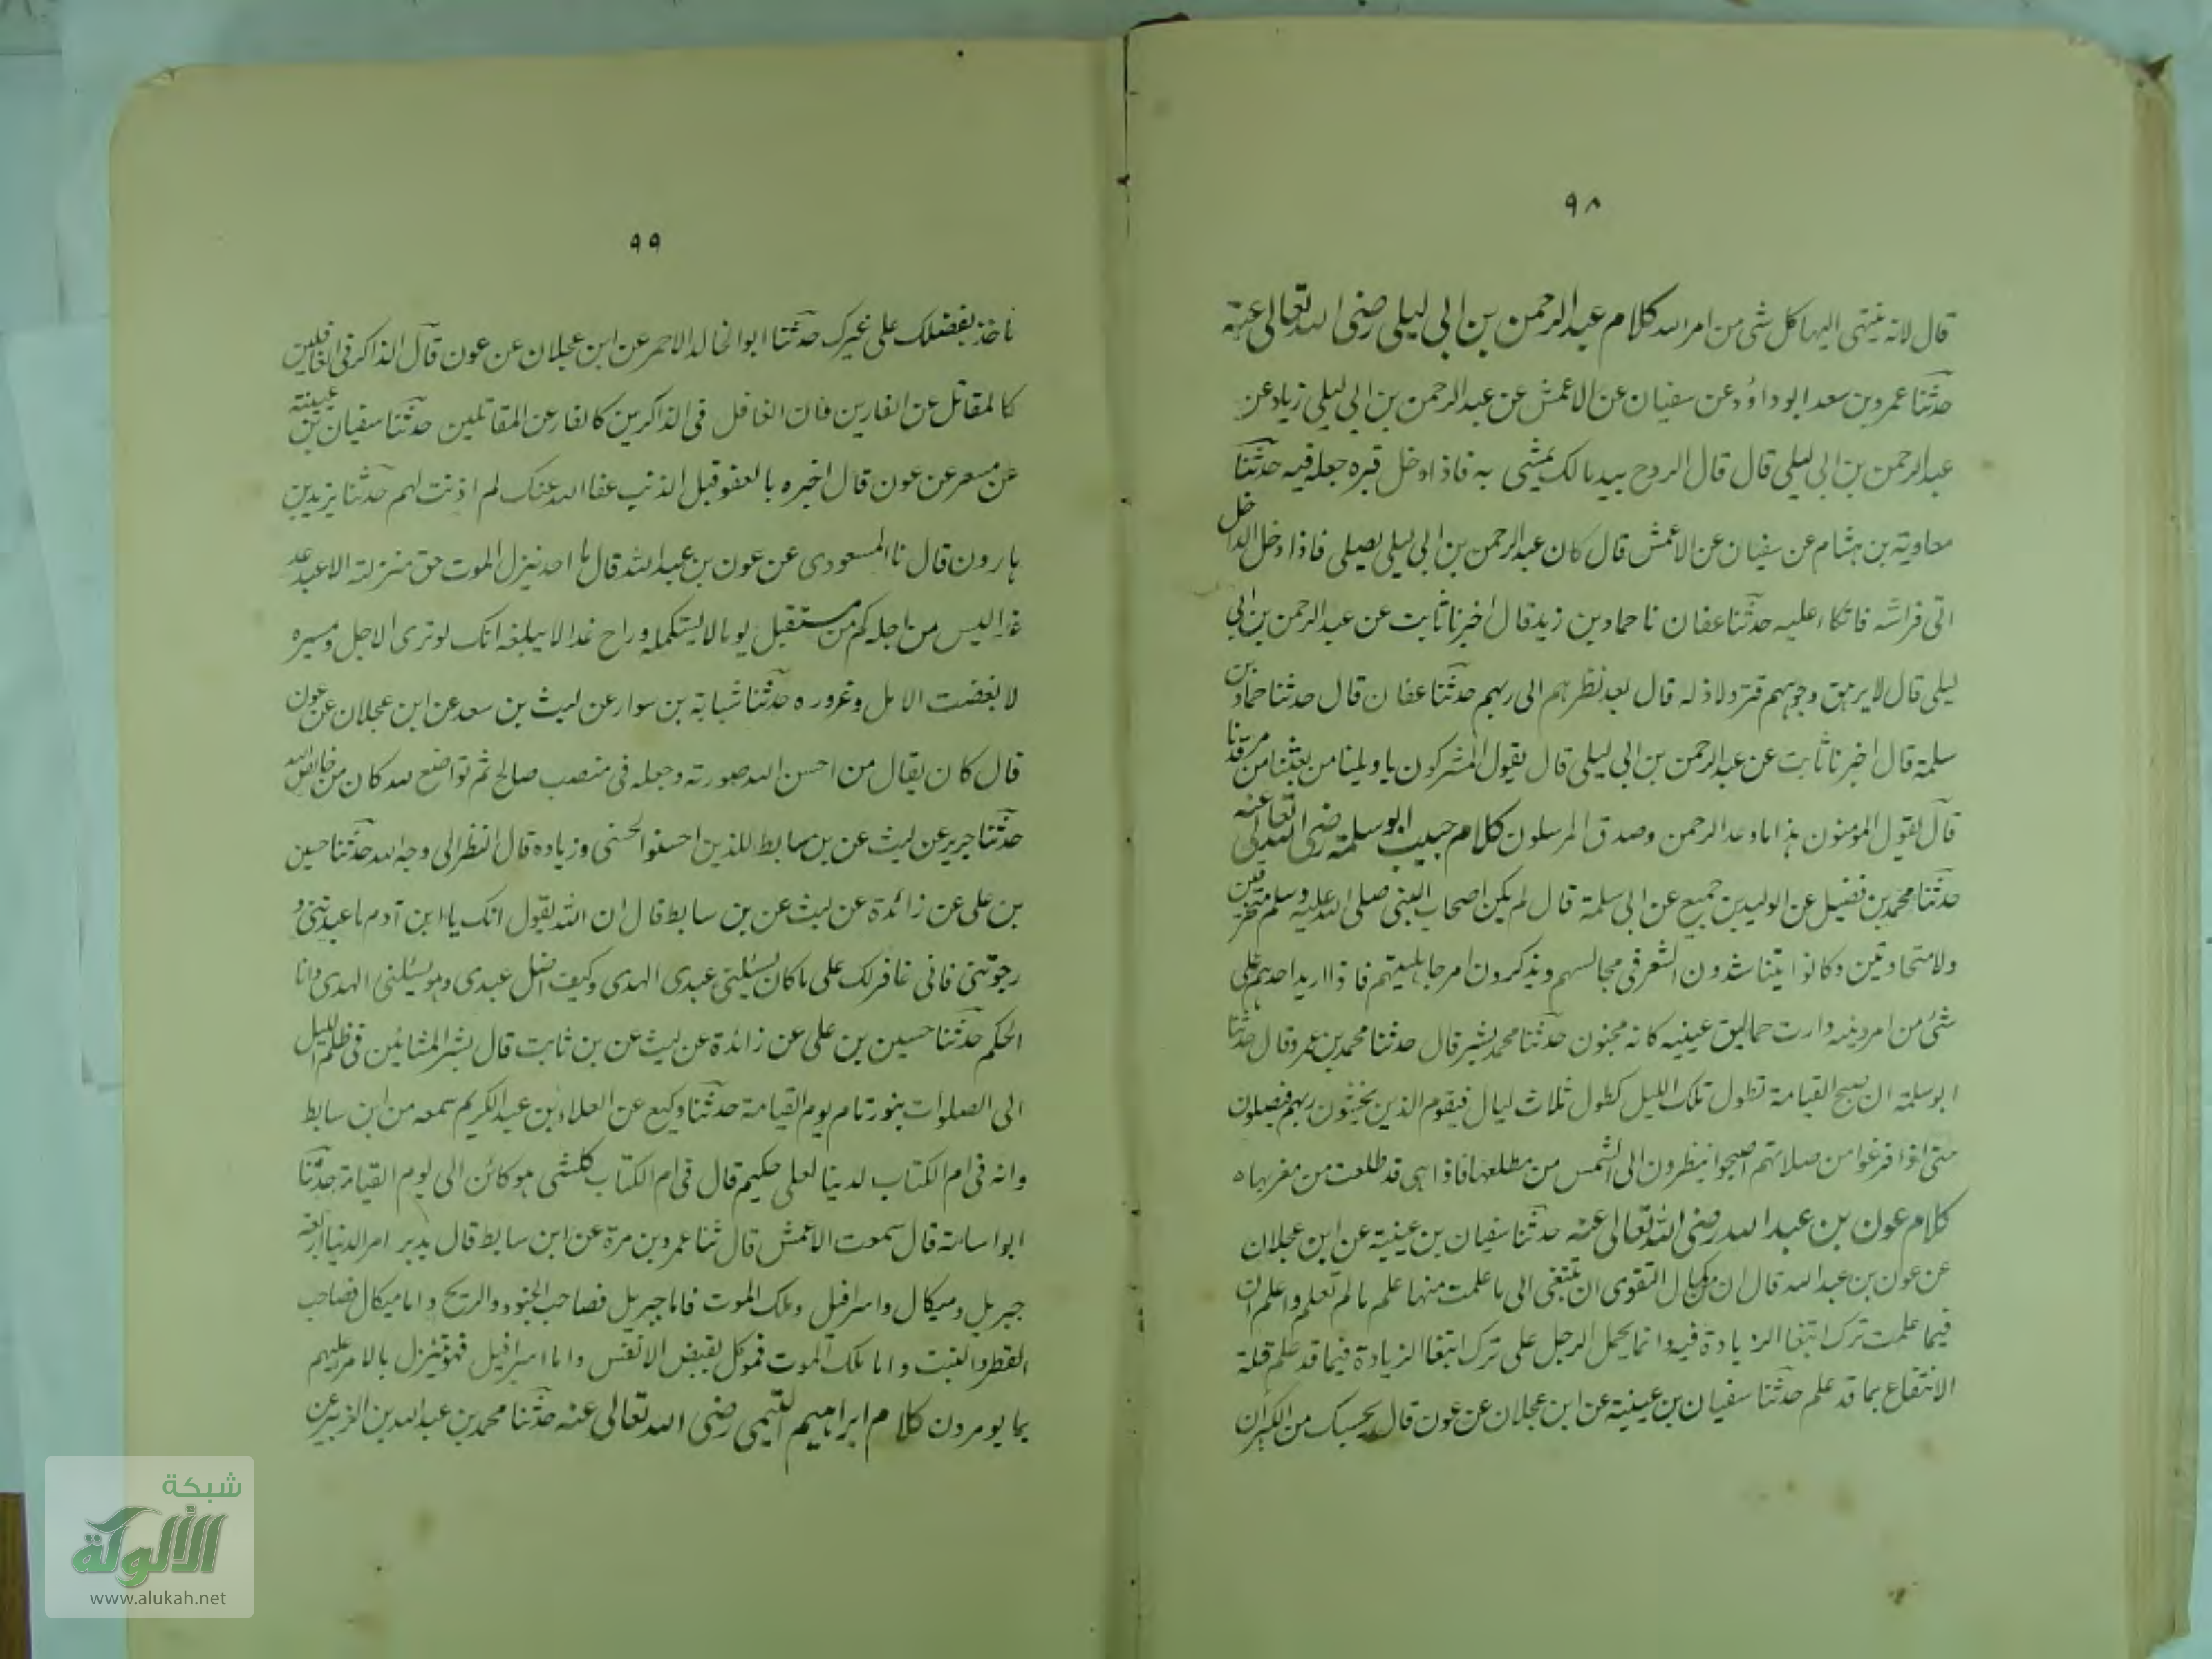 ٩٨
قال لانه ينتهى اليها كل شى من امر الله كلام عبد الرحمن بن ابى ليلى رضى الله تعالى عنه
حدثنا عمرو بن سعد ابو داؤد عن سفيان عن الاعمش عن عبد الرحمن بن ابى ليلى زياد عن
عبد الرحمن بن ابى ليلى قال قال الروح بيد مالك يمشى به فاذا دخل قبره جعله فيه حدثنا
معاوية بن هشام عن سفيان عن الاعمش قال كان عبد الرحمن بن ابى ليلى يصلى فاذا دخل الداخل
اتى فراشه فاتكا عليه حدثنا عفان نا حماد بن زيد قال اخبرنا ثابت عن عبد الرحمن بن ابى
ليلى قال لا يرهق وجوههم قتر ولا ذله قال بعد نظرهم الى ربهم حدثنا عفان قال حدثنا حماد بن
سلمة قال اخبرنا ثابت عن عبد الرحمن بن ابى ليلى قال يقول المشركون يا ويلنا من بعثنا من مرقدنا
قال يقول المؤمنون هذا ما وعد الرحمن وصدق المرسلون كلام حبيب ابو سلمة رضى الله تعالى عنه
حدثنا محمد بن فضيل عن الوليد بن جميع عن ابى سلمة قال لم يكن اصحاب النبى صلى الله عليه وسلم متحزقين
ولا متحاوتين وكانوا يتناشدون الشعر فى مجالسهم ويذكرون امر جاهليتهم فاذا اريد احدهم على
شئ من امر دينه دارت حماليق عينيه كانه مجنون حدثنا محمد بشر قال حدثنا محمد بن عمرو قال حدثنا
ابو سلمة ان صبح القيامة تطول تلك الليل كطول ثلاث ليال فيقوم الذين يخشون ربهم فيصلون
متى اذا فرغوا من صلاتهم اصبحوا ينظرون الى الشمس من مطلعها فاذا هى قد طلعت من مغربها ه
كلام عون بن عبد الله رضى الله تعالى عنه حدثنا سفيان بن عيينة عن ابن عجلان
عن عون بن عبد الله قال ان من كمال التقوى ان تبتغى الى ما علمت منها علم ما لم تعلم واعلم ان
فيما علمت ترك ابتغا الزيادة فيه وانما يحمل الرجل على ترك ابتغا الزيادة فيما قد علم قلة
الانتفاع بما قد علم حدثنا سفيان بن عيينة عن ابن عجلان عن عون قال بحسبك من الكبر ان
٩٩
تاخذ بفضلك على غيرك حدثنا ابو الخالد الاحمر عن ابن عجلان عن عون قال الذاكر فى الغافلين
كالمقاتل عن الفارين فان الغافل فى الذاكرين كالفار عن المقاتلين حدثنا سفيان بن عيينة
عن مسعر عن عون قال اخبره بالعفو قبل الذنب عفا الله عنك لم اذنت لهم حدثنا يزيد بن
هارون قال نا المسعودى عن عون بن عبد الله قال ما احد ينزل الموت حق منزلته الا عبد عد
غدا ليس من اجله كم من مستقبل يوما لا يستكمله وراح غدا لا يبلغه انك لو ترى الاجل ومسيره
لا بغضت الامل وغروره حدثنا شبابة بن سوار عن ليث بن سعد عن ابن عجلان عن عون
قال كان يقال من احسن الله صورته وجعله فى منصب صالح ثم تواضع لله كان من خالص الله
حدثنا جرير عن ليث عن بن سابط للذين احسنوا الحسنى وزيادة قال النظر الى وجه الله حدثنا حسين
بن على عن زائدة عن ليث عن بن سابط قال ان الله يقول انك يا ابن آدم ما عبدتنى و
رجوتنى فانى غافر لك على ما كان يسئلنى عبدى الهدى وكيف اضل عبدى وهو يسئلنى الهدى وانا
الحكم حدثنا حسين بن على عن زائدة عن ليث عن بن ثابت قال بشر المشائين فى ظلم الليل
الى الصلوات بنور تام يوم القيامة حدثنا وكيع عن العلاء بن عبد الكريم سمعه من ابن سابط
وانه فى ام الكتاب لدينا لعلى حكيم قال فى ام الكتاب كلشى هو كائن الى يوم القيامة حدثنا
ابو اسامة قال سمعت الاعمش قال ثنا عمرو بن مرة عن ابن سابط قال يدبر امر الدنيا اربعة
جبريل وميكال واسرافيل وملك الموت فاما جبريل فصاحب الجنود والريح واما ميكال فصاحب
القطر والنبت واما ملك الموت فموكل بقبض الانفس واما اسرافيل فهو ينزل بالامر عليهم
بما يومرون كلام ابراهيم التيمى رضى الله تعالى عنه حدثنا محمد بن عبد الله بن الزبير عن
شبكة
الألوكة
www.alukah.net